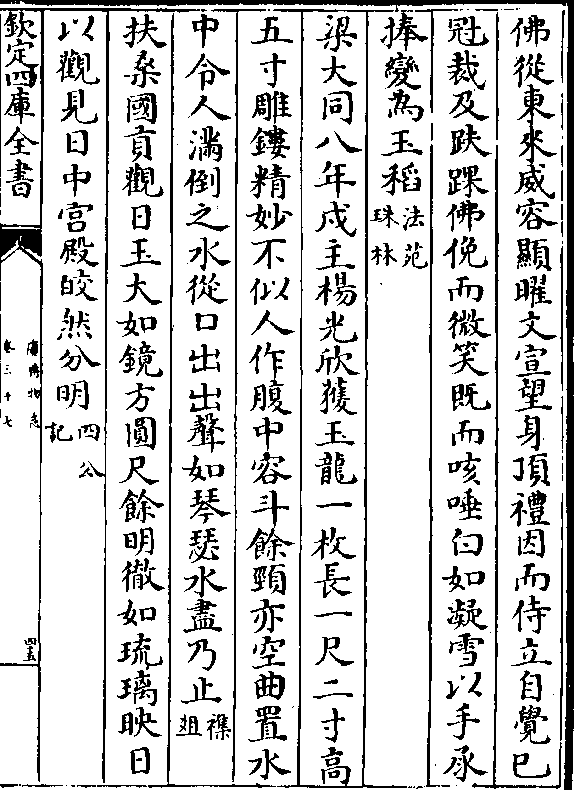 佛從東來威容顯曜文宣望身頂禮因而侍立自覺已
冠裁及趺踝佛俛而微笑既而咳唾白如凝雪以手承
捧變為玉稻法苑珠林
梁大同八年戍主楊光欣獲玉龍一枚長一尺二寸高
五寸雕鏤精妙不似人作腹中容斗餘頸亦空曲置水
中令人滿倒之水從口出出聲如琴瑟水盡乃止襍俎
扶桑國貢觀日玉大如鏡方圓尺餘明徹如琉璃映日
以觀見日中宮殿皎然分明四公記
欽定四庫全書
廣博物志
卷三十七
四五